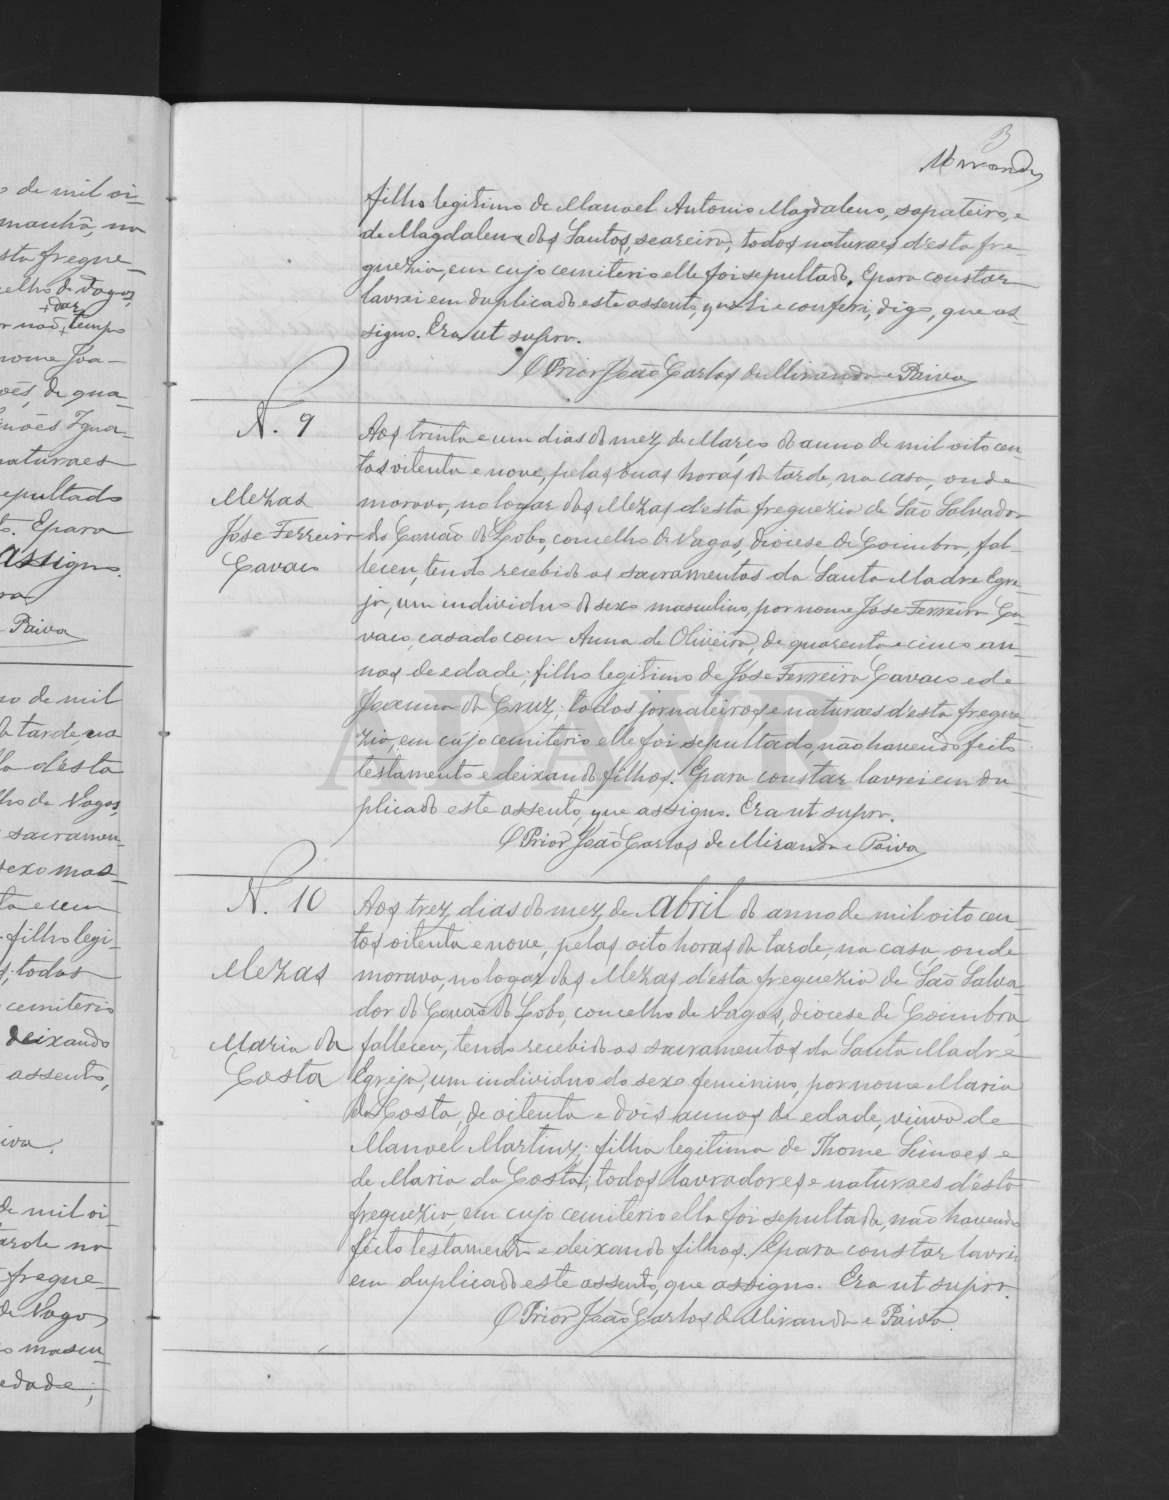 3
Miranda
filho legitimo de Manoel Antonio Magdaleno, sapateiro, e
de Magdalena dos Santos, seareira, todos naturaes d'esta fre-
guezia, em cujo cemiterio elle foi sepultado. E para constar
lavrei em duplicado este assento, que li e conferi, digo, que as-
signo. Era ut supra.
O Prior João Carlos de Miranda e Paiva
N. 9
Mezas
José Ferreira
Gavaio
Aos trinta e um dias do mez de Março do anno de mil oito cen-
tos oitenta e nove, pelas duas horas da tarde, na casa, onde
morava, no logar das Mezas d'esta freguezia de São Salvador
do Covão do Lobo, concelho de Vagos, diocese de Coimbra, fal-
leceu, tendo recebido os sacramentos da Santa Madre Egre-
ja, um individuo do sexo masculino, por nome José Ferreira Ga-
vaio, casado com Anna de Oliveira, de quarenta e cinco an-
nos de edade; filho legitimo de José Ferreira Gavaio e de
Joanna da Cruz; todos jornaleiros e naturaes d'esta fregue-
zia, em cujo cemiterio elle foi sepultado, não havendo feito
testamento e deixando filhos. E para constar lavrei em du-
plicado este assento, que assigno. Era ut supra.
O Prior João Carlos de Miranda e Paiva
N. 10
Mezas
Maria da
Costa
Aos trez dias do mez de Abril do anno de mil oito cen-
tos oitenta e nove, pelas oito horas da tarde, na casa, onde
morava, no logar das Mezas d'esta freguezia de São Salva-
dor do Covão do Lobo, concelho de Vagos, diocese de Coimbra,
falleceu, tendo recebido os sacramentos da Santa Madre
Egreja, um individuo do sexo feminino, por nome Maria
da Costa, de oitenta e dois annos de edade, viuva de
Manoel Martins; filha legitima de Thome Simoes e
de Maria da Costa; todos lavradores e naturaes d'esta
freguezia, em cujo cemiterio ella foi sepultada, não havendo
feito testamento e deixando filhos. E para constar lavrei
em duplicado este assento, que assigno. Era ut supra.
O Prior João Carlos de Miranda e Paiva.
o de mil oi-
manhã, na
sta fregue-
celho de Vagos,
dar
r não, tempo
nome Joa-
oēs, de qua-
imões Igna-
naturaes
sepultado
E para
assigno.
Paiva
no de mil
da tarde, na
d'esta
lho de Vagos,
sacramen-
sexo mas-
ta e um
filho legi-
todos
cemiterio
deixando
assento,
iva.
de mil oi-
arde na
fregue-
de Vagos
o mascu-
edade;
ADAVR